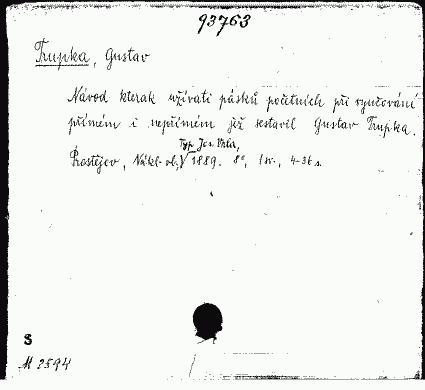 93763
Trupka, Gustav
Návod kterak užívati pásků početních při vyučování
přímém i nepřímém jež sestavil Gustav Trupka.
Typ. Jos. Vrla,
Prostějov, Nákl. vl., 1889. 8°, 1 sv., 4-36 s.
S
M 2594